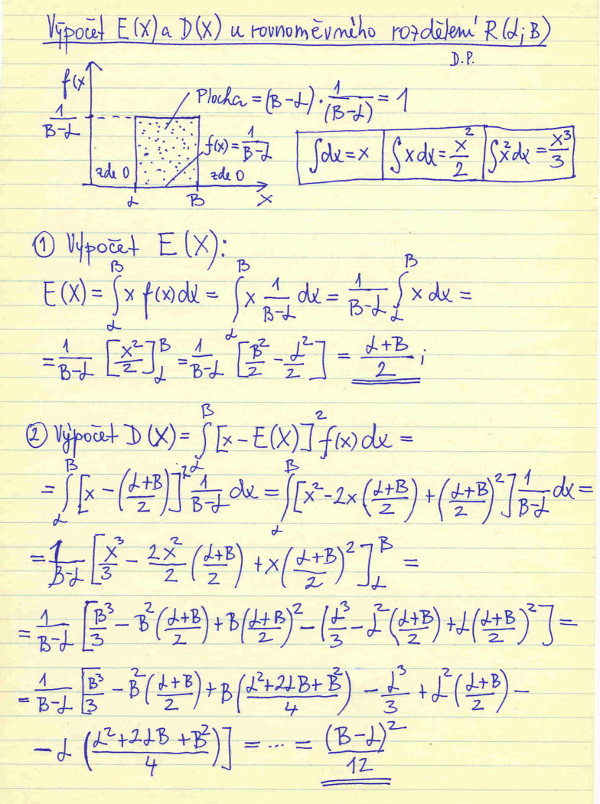 Výpočet E(X) a D(X) u rovnoměrného rozdělení R(α;B)
D.P.
f(x
1/(B-α)
Plocha = (B-α) · 1/(B-α) = 1
f(x) = 1/(B-α)
zde 0
zde 0
α B x
∫dx = x | ∫x dx = x²/2 | ∫x² dx = x³/3
① Výpočet E(X):
E(X) = ∫_α^B x f(x) dx = ∫_α^B x 1/(B-α) dx = 1/(B-α) ∫_α^B x dx =
= 1/(B-α) [x²/2]_α^B = 1/(B-α) [B²/2 - α²/2] = (α+B)/2 ;
② Výpočet D(X) = ∫_α^B [x - E(X)]² f(x) dx =
= ∫_α^B [x - ((α+B)/2)]² 1/(B-α) dx = ∫_α^B [x² - 2x((α+B)/2) + ((α+B)/2)²] 1/(B-α) dx =
= 1/(B-α) [x³/3 - 2x²/2 ((α+B)/2) + x((α+B)/2)²]_α^B =
= 1/(B-α) [B³/3 - B²((α+B)/2) + B((α+B)/2)² - (α³/3 - α²((α+B)/2) + α((α+B)/2)²] =
= 1/(B-α) [B³/3 - B²((α+B)/2) + B((α²+2αB+B²)/4) - α³/3 + α²((α+B)/2) -
- α((α²+2αB+B²)/4)] = ... = (B-α)²/12